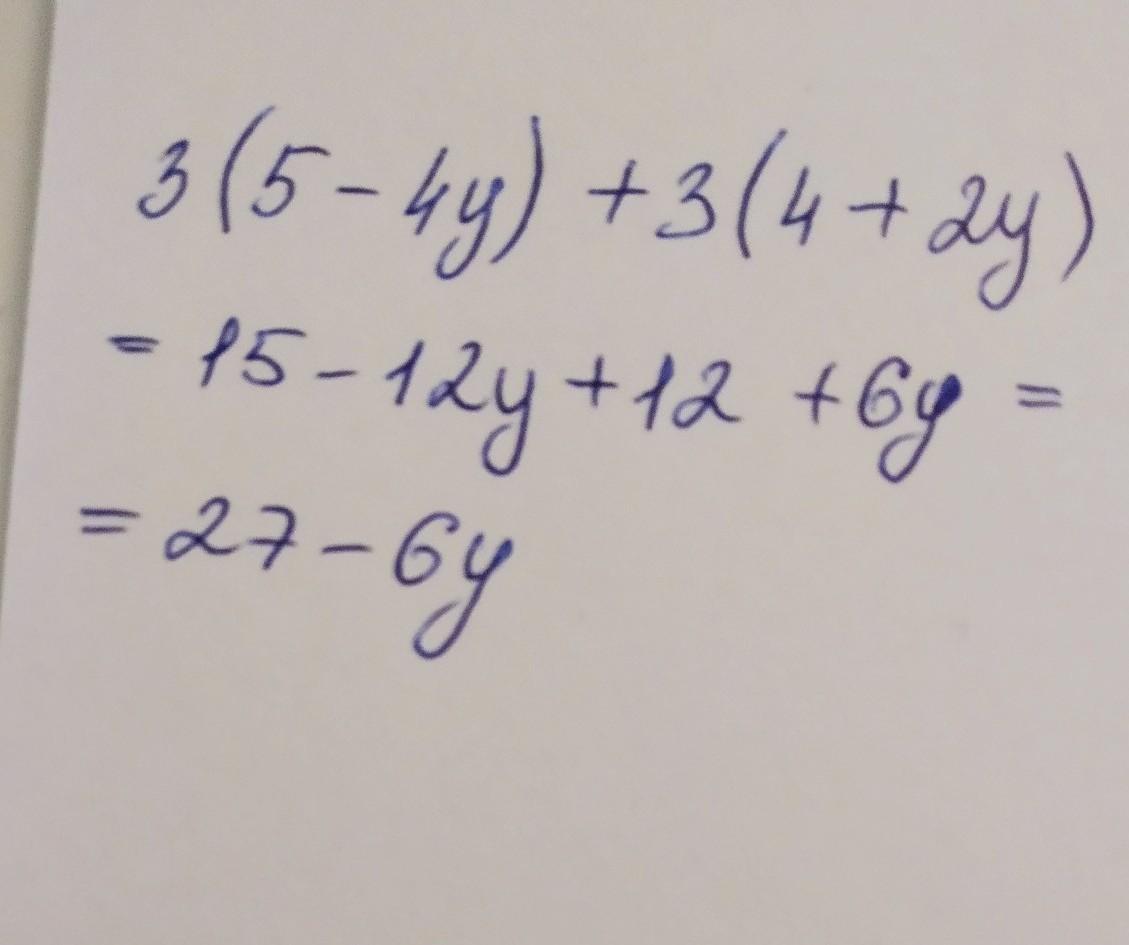 3(5-4y)+3(4+2y)
=15-12y+12+6y=
=27-6y